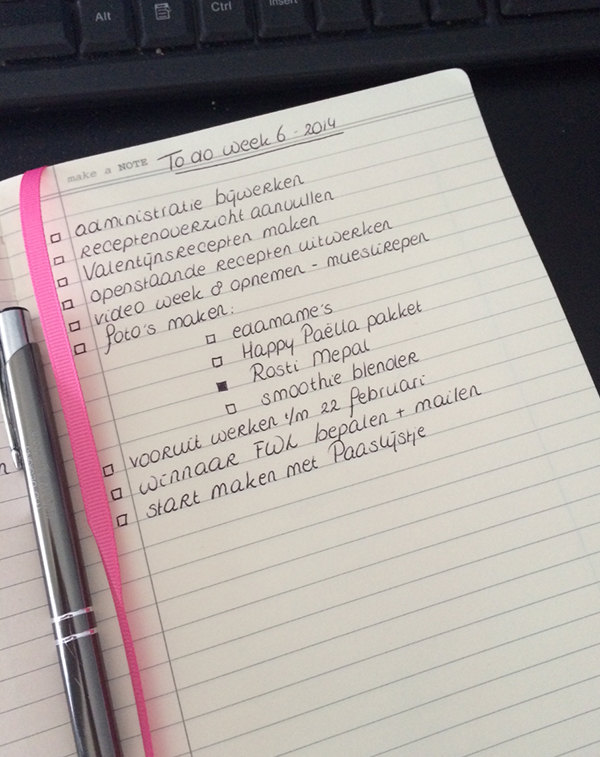 Alt
Ctrl
Insert
make a NOTE To do week 6 - 2014
administratie bijwerken
Receptenoverzicht aanvullen
Valentijnsrecepten maken
openstaande recepten uitwerken
video week 8 opnemen - mueslirepen
foto's maken:
edamame's
Happy Paëlla pakket
Rosti Mepal
smoothie blender
vooruit werken t/m 22 februari
winnaar FWK bepalen + mailen
start maken met Paaslijstje
n